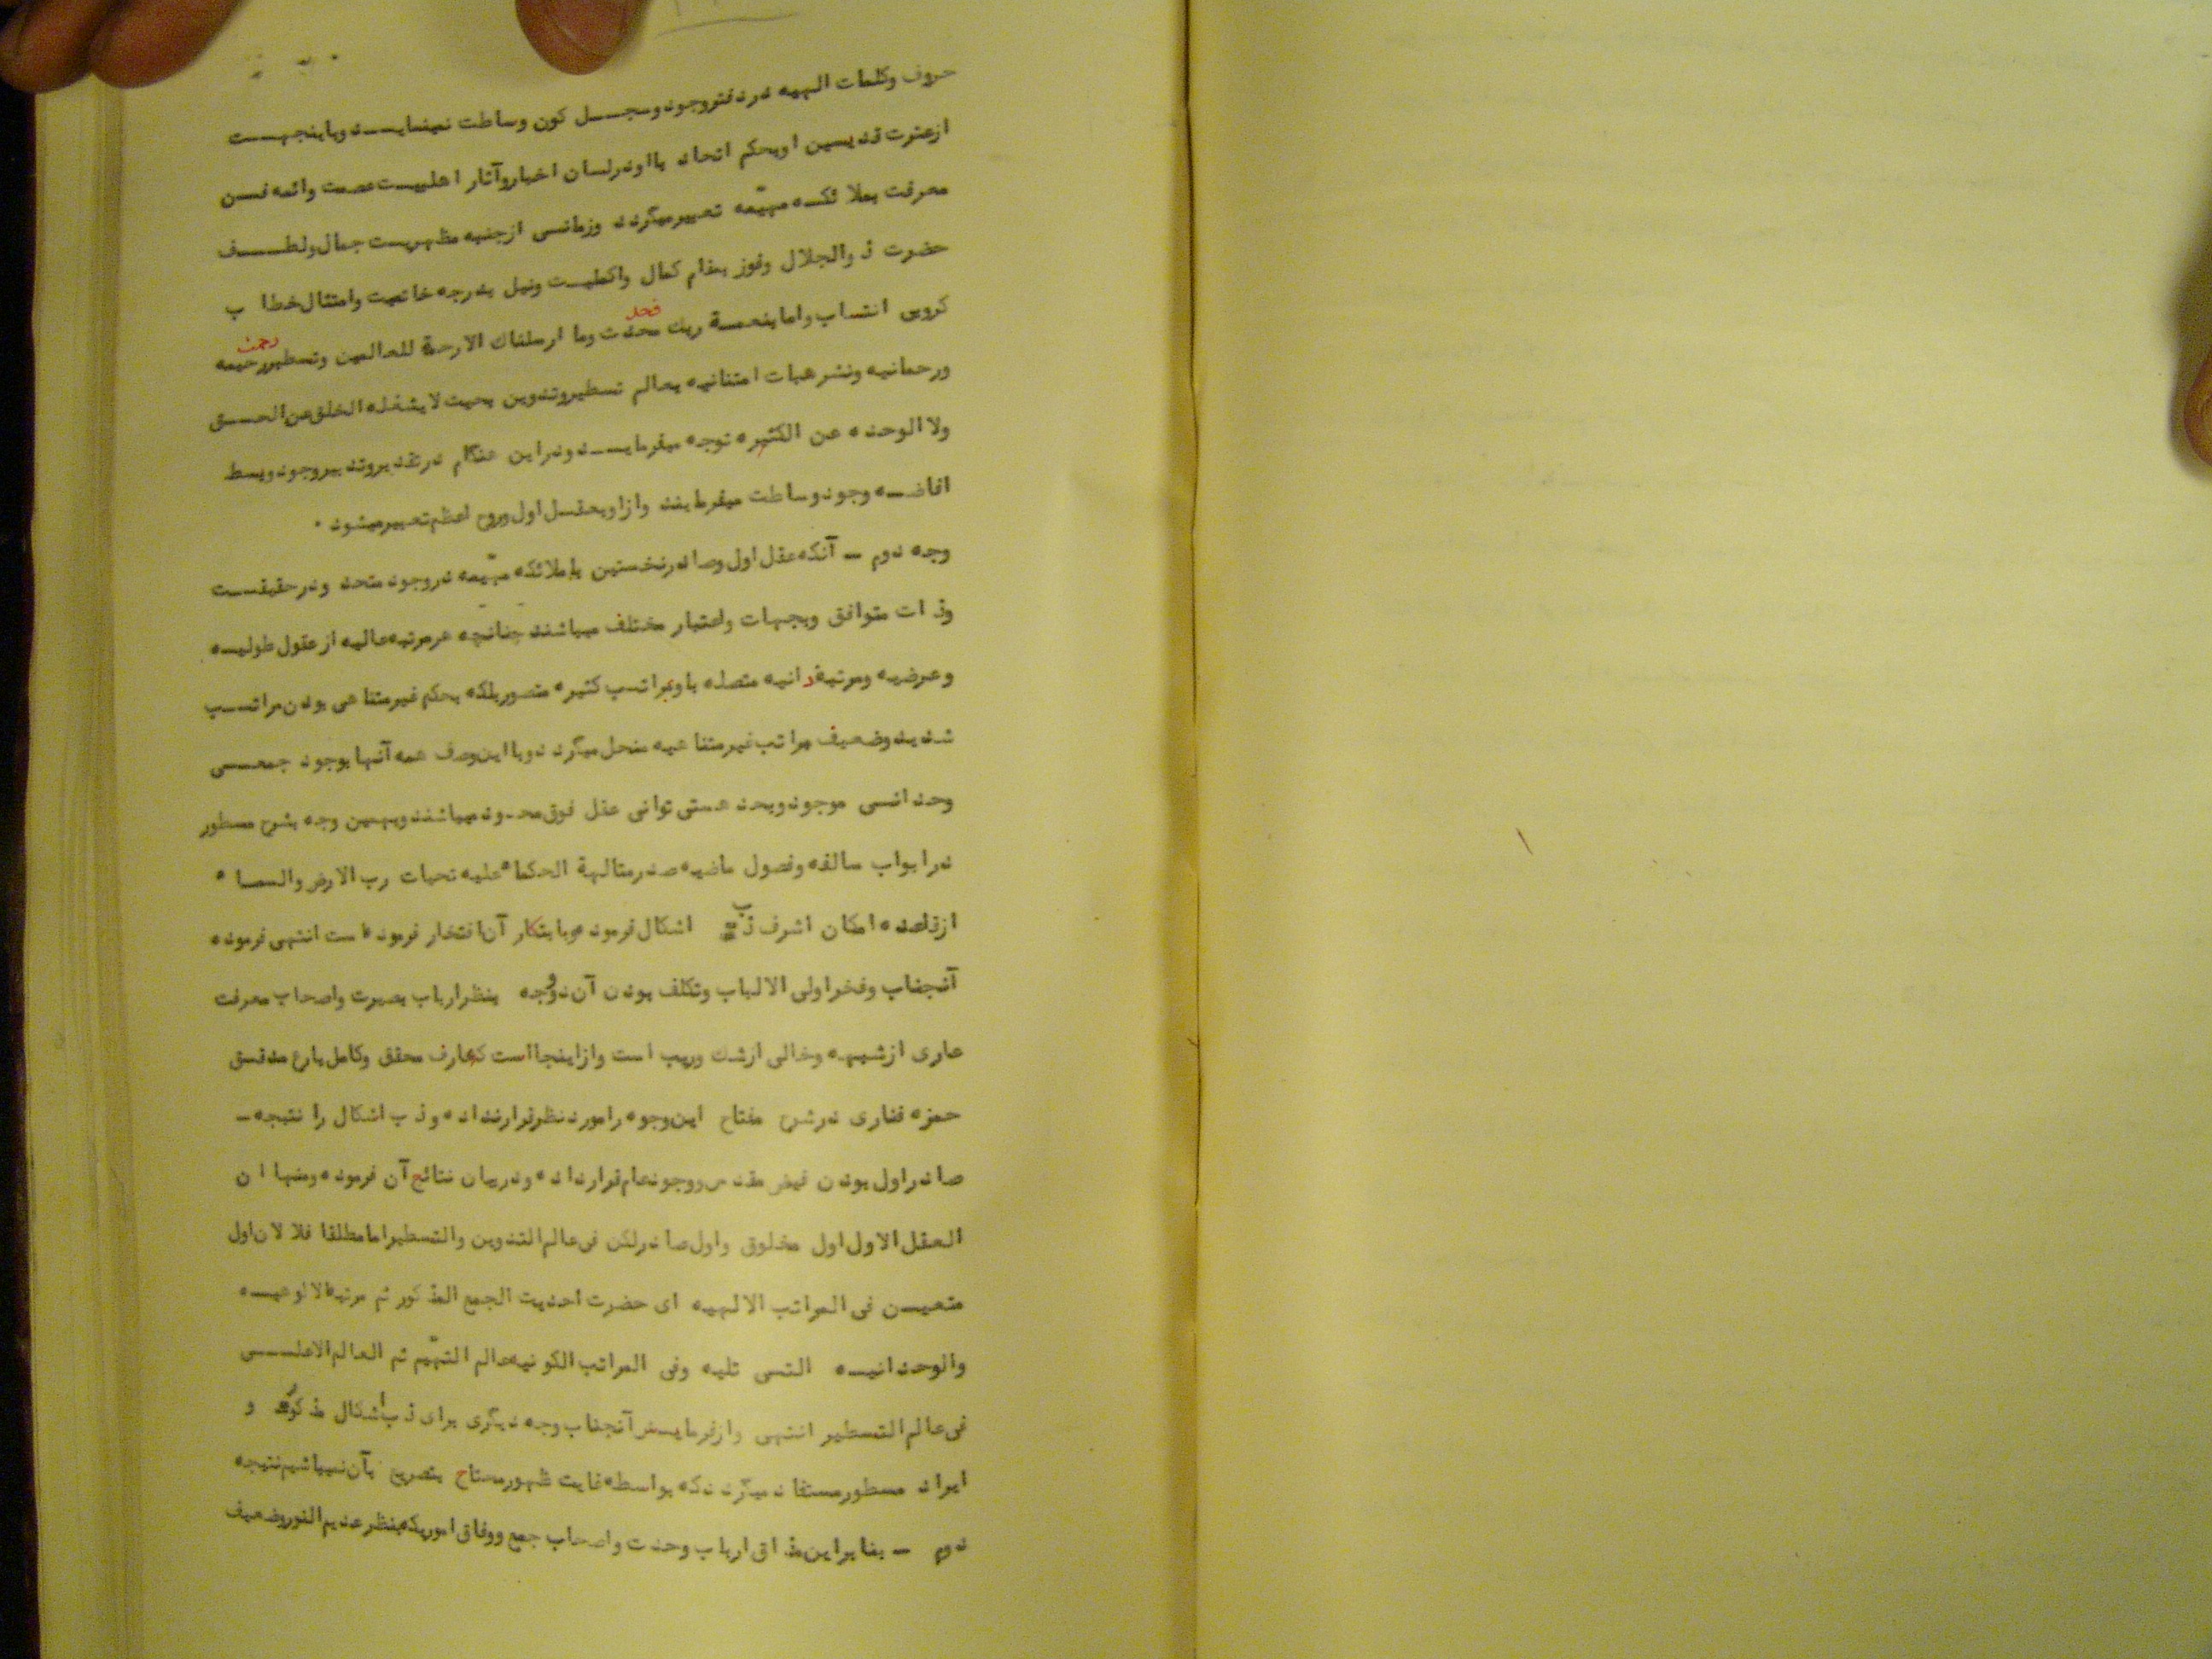 حروف وکلمات الهیه دردفتروجودوسجــل کون وساطت نمینمایــدوباینجهــت
ازعترت قدیسین اوبحکم اتحاد بااودرلسان اخباروآثار اهلبیــت‌عصمت وائمه‌فــن
معرفت بملا ئکــه مهیّمه تعبیرمیگردد وزمانــی ازجنبه مظهریــت جمال‌ولطــف
حضرت ذ والجلال وفوز بمقام کمال واکملیــت ونیل بدرجه خاتمیت وامتثال‌خطا ب
کروبی انتساب‌واما بنعمــة ربك فحد محدث وما ارسلناك الارحمة للعالمین وتسطیر رحمت رحیمه
ورحمانیه ونشرهبات امتنانیه بعالم تسطیروتدوین بحیث لایشغله الخلق‌عن‌الحــق
ولا الوحده عن الکثیره توجه میفرمایــد ودراین هنگام درتقدیروتدبیروجودوبسط
افاضــه وجودوساطت میفرمایند وازاوبعقــل اول‌وروح اعظم‌تعبیرمیشود .
وجه دوم ــ آنکه عقل اول‌وصادرنخستین باملائکه مهیّمه دروجود متحد ودرحقیقــت
وذ ات متوافق وبجهات واعتبار مختلف میباشند چنانچه هرمرتبه‌عالیه ازعقول طولیــه
وعرضیه ومرتبه دانیه متصله باومراتــب کثیره متصوربلکه بحکم غیرمتناهی بودن‌مراتــب
شدیدوضعیف مراتب‌غیرمتناهیه منحل میگردد وبااین‌وصف همه آنها بوجود جمعــی
وحدانــی موجودوبحد هستی توانی عقل فوق‌محدود میباشند وبهمین وجه بشرح مسطور
درابواب سالفه وفصول ماضیه صدرمتالهة الحکماء علیه تحیات رب الارض والسماء
ازقاعده امکان اشرف ذب اشکال‌فرموده وبابتکار آن‌افتخار فرموده است انتهی فرموده
آنجناب وفخراولی الالباب وتکلف بودن آن‌دووجه بنظرارباب بصیرت واصحاب معرفت
عاری ازشبهه وخالی ازشك وریب است وازاینجااست که‌عارف محقق وکامل بارع مدقــق
حمزه فناری درشرح مفتاح این‌وجوه رامورد نظرقرارنداده وذ ب اشکال را نتیجه ــ
صادراول بودن فیض مقدس‌ووجودعام‌قرارداده ودربیان نتائج آن فرموده ومنها ان
العقل الاول‌اول مخلوق واول‌صادرلکن فی‌عالم التدوین والتسطیراما مطلقا فلا لان‌اول
متعیــن فی المراتب الالهیه ای حضرت احدیت الجمع المذ کور ثم مرتبة‌الالوهیــه
والوحدانیــه التــی تلیه وفی المراتب الکونیه‌عالم التهیّم ثم العالم‌الاعلــی
فی‌عالم التسطیر انتهی وازفرمایــش آنجناب وجه دیگری برای ذ ب‌اشکال مذ کور و
ایراد مسطورمستفاد میگردد که بواسطه غایت ظهورمحتاج بتصریح بآن‌نمیباشیم نتیجه
دوم ــ بنابراین مذ اق ارباب وحدت واصحاب جمع ووفاق اموریکه‌بنظرعدیم النوروضعیف